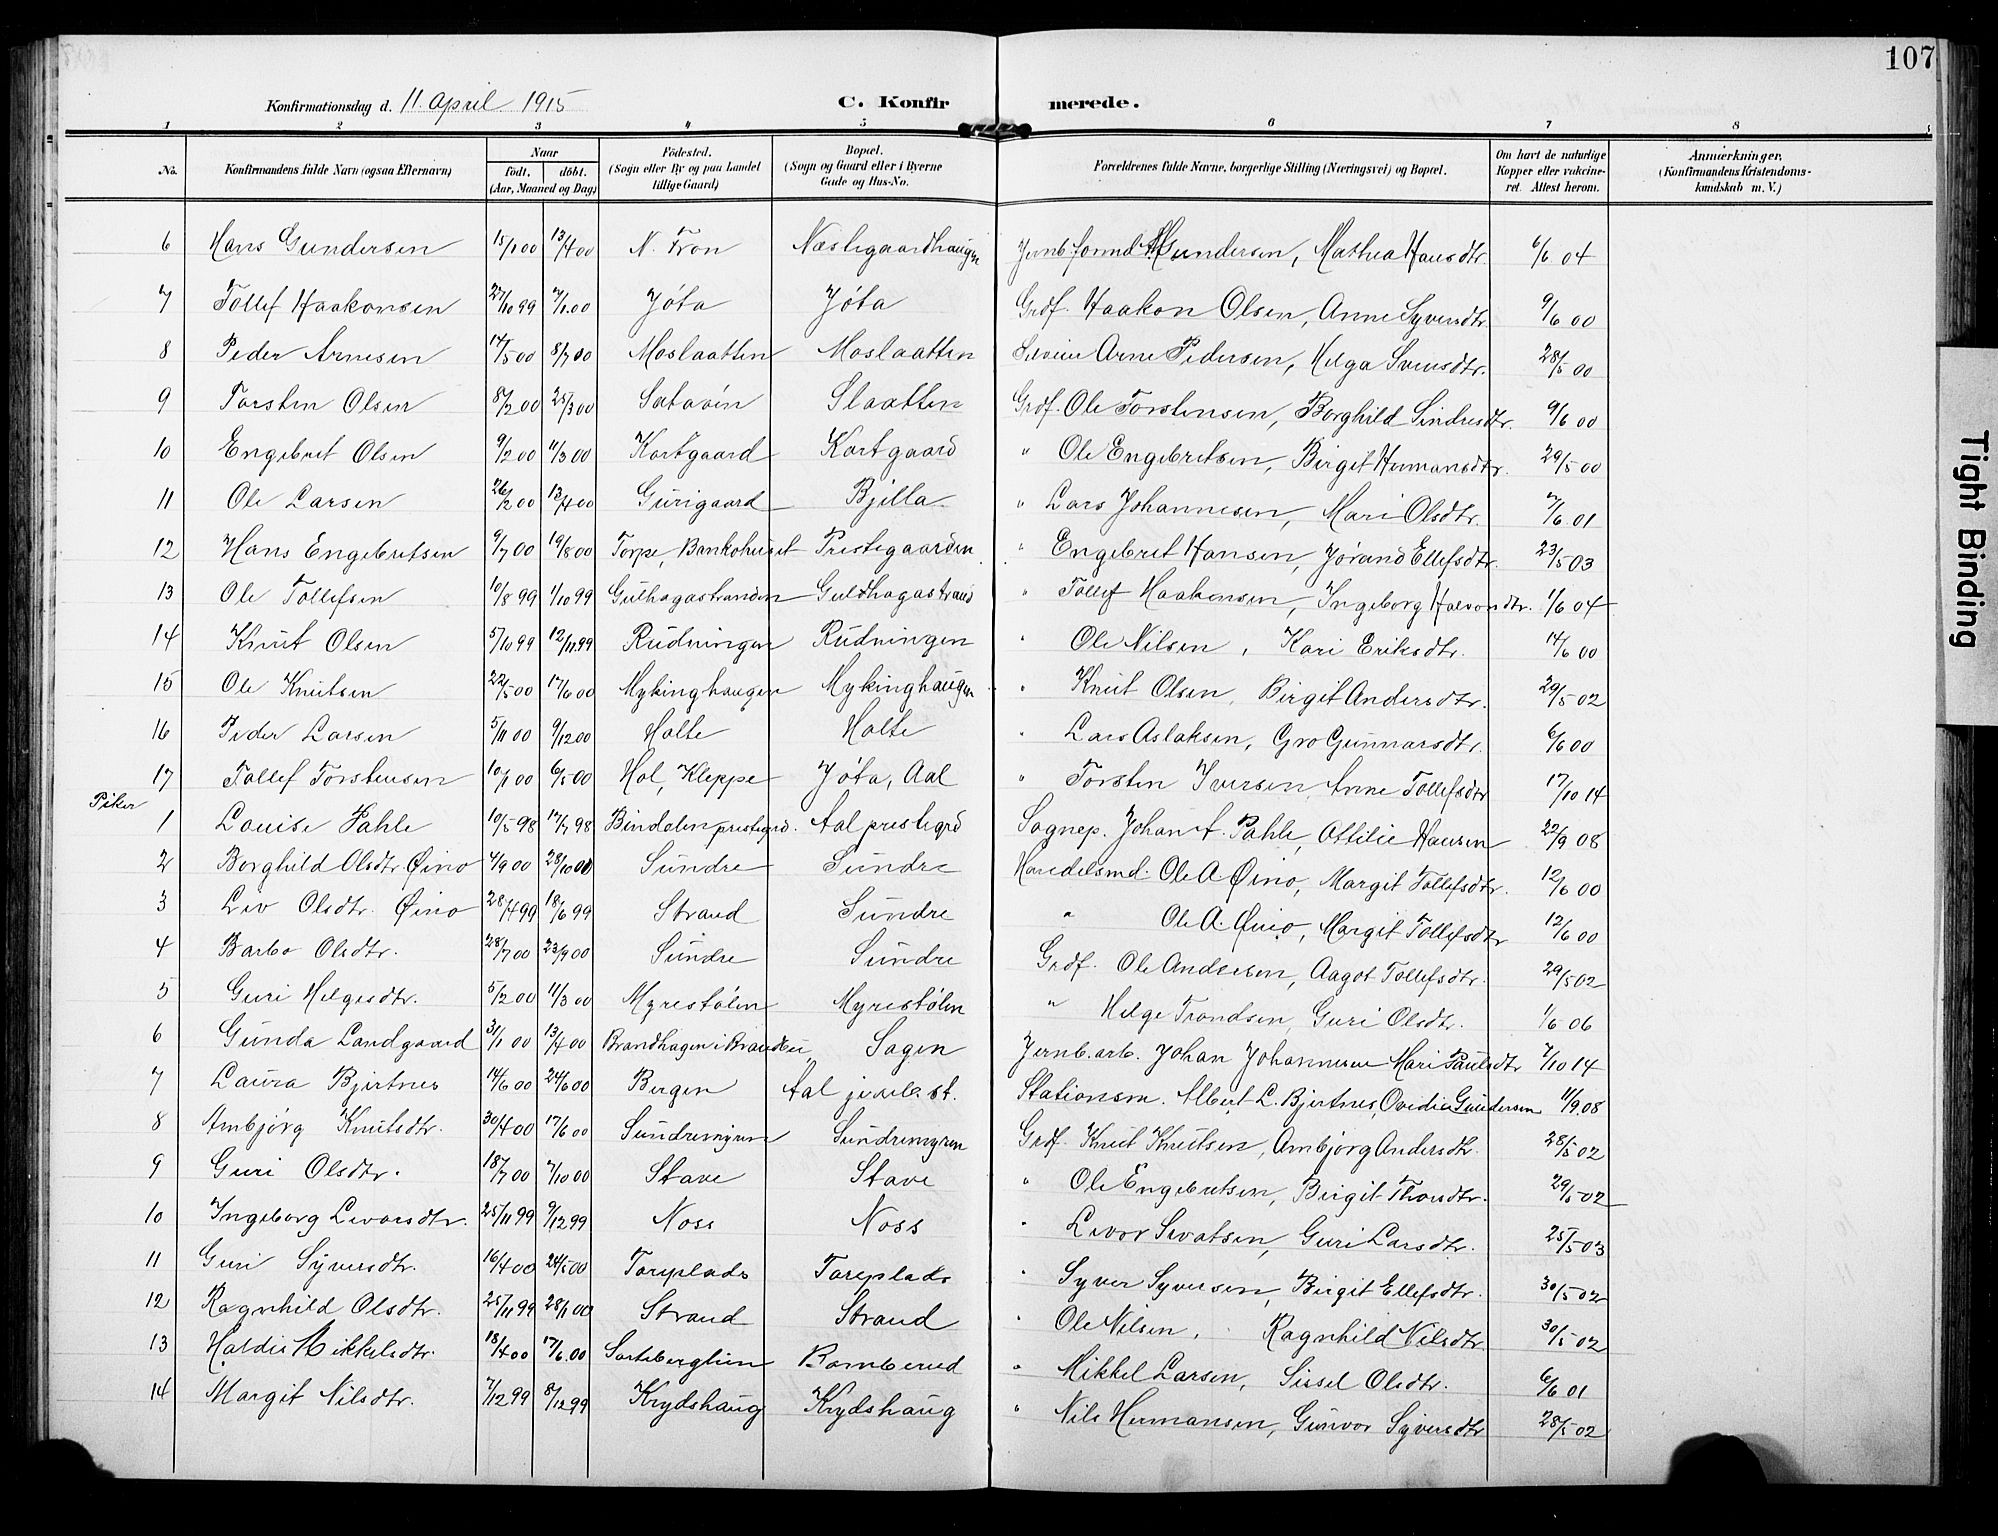 107
Konfirmationsdag d. 11 April 1915 C. Konfirmerede.
1 2 3 4 5 6 7 8
No. Konfirmandens fulde Navn (ogsaa Efternavn) Naar födt. döbt. (Aar, Maaned og Dag) Födested. (Sogn eller By og paa Landet tillige Gaard) Bopæl. (Sogn og Gaard eller i Byerne Gade og Hus-No. Forældrenes fulde Navne, borgerlige Stilling (Næringsvei) og Bopæl. Om havt de naturlige Kopper eller vakcineret. Attest herom. Anmærkninger, (Konfirmandens Kristendomskundskab m. V.)
6 Hans Gundersen 15/1 00 13/4 00 N. Fron Næslegaardhaugen Jernb.formd Gundersen, Mathea Hansdtr. 6/6 04
7 Tollef Haakonsen 27/10 99 7/1 00 Jøta Jøta Grdf. Haakon Olsen, Anne Syversdtr. 9/6 00
8 Peder Arnesen 14/5 00 8/7 00 Moslaatten Moslaatten Arne Pedersen, Helga Svensdtr. 28/5 00
9 Torsten Olsen 8/2 00 25/3 00 Slaatten Grdf. Ole Torstensen, Borghild Sindresdtr. 9/6 00
10 Engebret Olsen 9/2 00 11/3 00 Kortgaard Kortgaard " Ole Engebretsen, Birgit Hermansdtr. 29/5 00
11 Ole Larsen 26/2 00 13/4 00 Gurigaard Bjella " Lars Johannesen, Mari Olsdtr. 7/6 01
12 Hans Engebretsen 9/7 00 19/8 00 Torpe, Bankohuset Prestegaarden " Engebret Hansen, Jørand Ellefsdtr. 23/5 03
13 Ole Tollefsen 10/8 99 1/10 99 Gulhagastranden Guldhagastrand " Tollef Haakensen, Ingeborg Halvorsdtr. 1/6 04
14 Knut Olsen 5/10 99 12/11 99 Rudningen Rudningen " Ole Nilsen, Kari Eriksdtr. 14/6 00
15 Ole Knutsen 22/5 00 17/6 00 Mykinghaugen Mykinghaugen " Knut Olsen, Birgit Andersdtr. 29/5 02
16 Peder Larsen 5/11 00 9/12 00 Holte Holte " Lars Aslaksen, Gro Gunnarsdtr. 6/6 00
17 Tollef Torstensen 10/1 00 6/5 00 Hol, Kleppe Jøta, Aal " Torsten Iversen, Anne Tollefsdtr 17/10 14
Piker
1 Louise Pahle 10/5 98 17/7 98 Bindalen prestegrd. Aal prestegrd Sognep. Johan A. Pahle, Ottilie Hansen 22/9 08
2 Borghild Olsdtr. Øino 4/9 00 28/10 00 Sundre Sundre Handelsmd. Ole A. Øino, Margit Tollefsdtr. 12/6 00
3 Liv Olsdtr. Øino 28/4 99 18/6 99 Strand Sundre " Ole A. Øino, Margit Tollefsdtr 12/6 00
4 Barbo Olsdtr. 28/7 00 23/9 00 Sundre Sundre Grdf. Ole Andersen, Aagot Tollefsdtr. 29/5 02
5 Guri Helgesdtr. 5/2 00 11/3 00 Myrestølen Myrestølen " Helge Trondsen, Guri Olsdtr. 1/6 06
6 Gunda Landgaard 31/1 00 13/4 00 Brandhagen i Brandbu Sagen Jernb.arb. Johan Johannesen Mari Paulsdtr 7/10 14
7 Laura Bjertnes 14/6 00 24/6 00 Bergen Aal jernb.st. Stationsm. Albert L. Bjertnes, Ovedia Gundersen 11/9 08
8 Ambjørg Knutsdtr. 30/4 00 17/6 00 Sundremyren Sundremyren Grdf. Knut Knutsen, Ambjørg Andersdtr. 28/5 02
9 Guri Olsdtr. 18/7 00 7/10 00 Stave Stave " Ole Engebretsen, Birgit Thorsdtr. 29/5 02
10 Ingeborg Levorsdtr. 25/11 99 9/12 99 Noss Noss " Levor Sevatsen, Guri Larsdtr. 25/5 03
11 Guri Syversdtr. 16/4 00 24/5 00 Toreplads Toreplads " Syver Syversen, Birgit Ellefsdtr. 30/5 02
12 Ragnhild Olsdtr. 25/11 99 28/1 00 Strand Strand " Ole Nilsen, Ragnhild Nilsdtr. 30/5 02
13 Haldis Mikkelsdtr. 18/4 00 17/6 00 Ramberud " Mikkel Larsen, Sissel Olsdtr. 6/6 01
14 Margit Nilsdtr. 7/12 99 8/12 99 Krydshaug Krydshaug " Nils Hermansen, Gunvor Syversdtr 28/5 02
Tight Binding